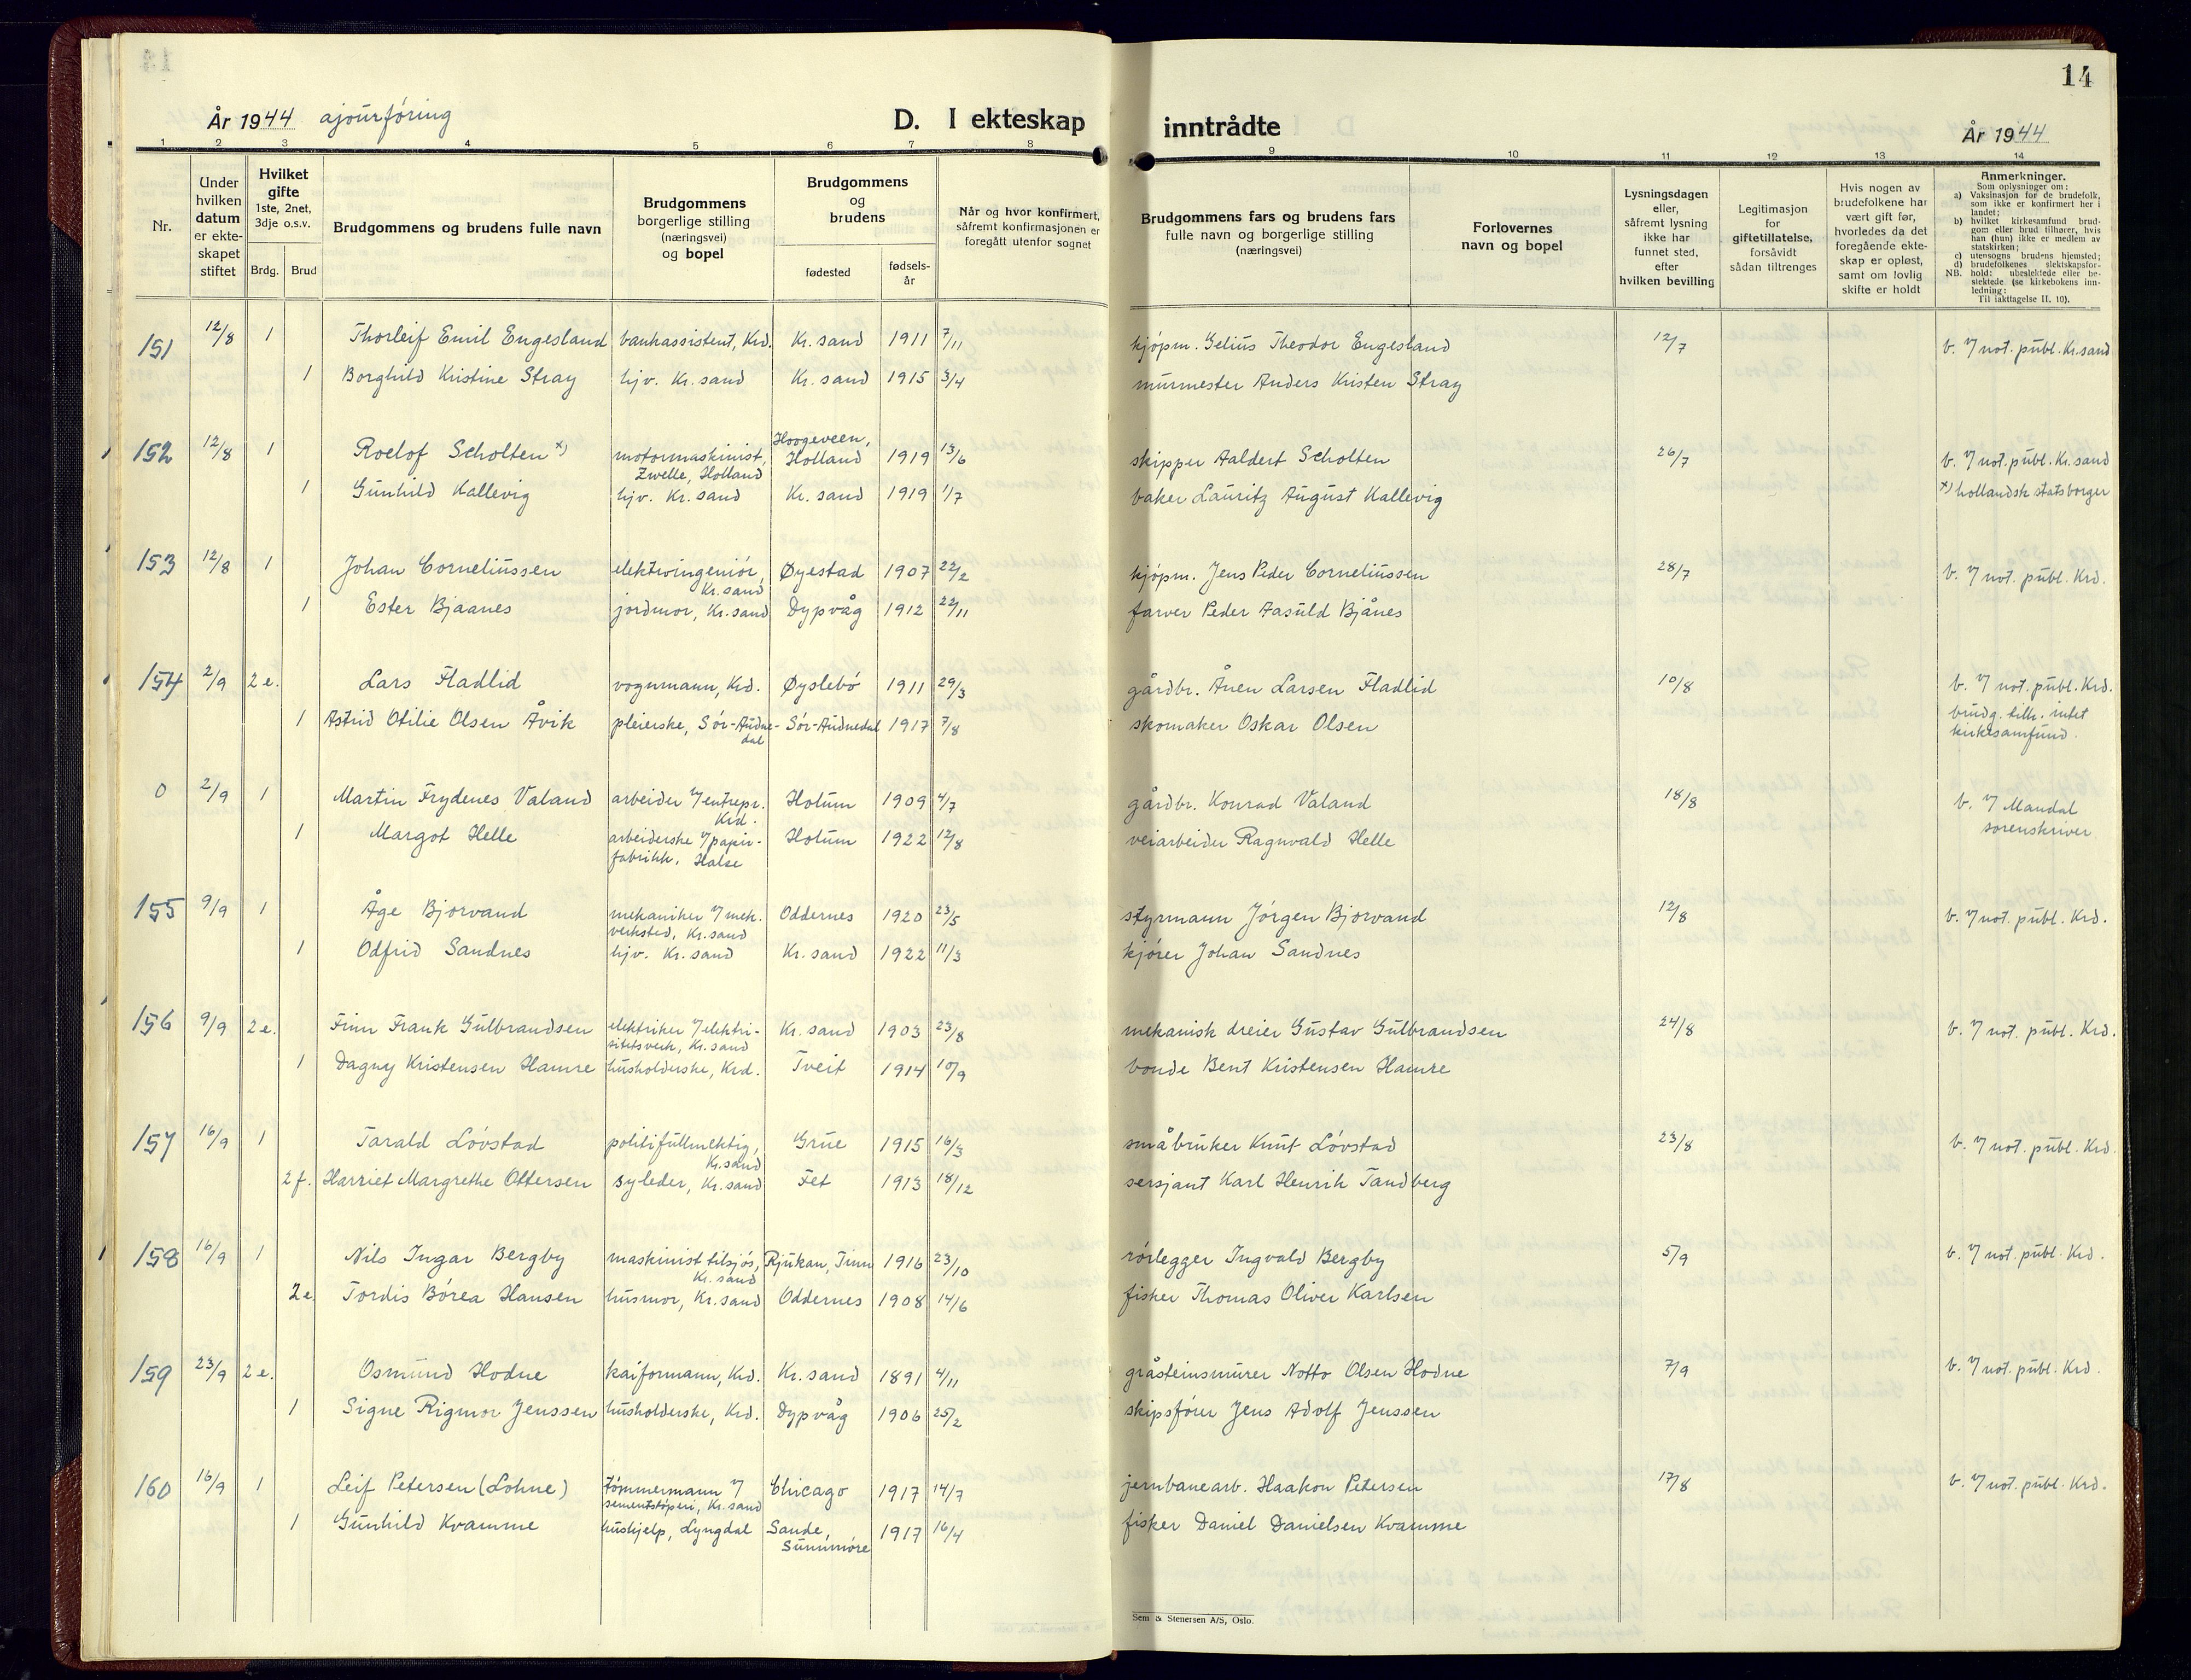 14
År 1944 ajourføring
D. I ekteskap inntrådte
År 1944
1 2 3 4 5 6 7 8 9 10 11 12 13 14
Nr.
Under hvilken datum er ekteskapet stiftet
Hvilket gifte 1ste, 2net, 3dje o.s.v.
Brdg. Brud
Brudgommens og brudens fulle navn
Brudgommens borgerlige stilling (næringsvei) og bopel
Brudgommens og brudens
fødested fødselsår
Når og hvor konfirmert, såfremt konfirmasjonen er foregått utenfor sognet
Brudgommens fars og brudens fars fulle navn og borgerlige stilling (næringsvei)
Forlovernes navn og bopel
Lysningsdagen eller, såfremt lysning ikke har funnet sted, efter hvilken bevilling
Legitimasjon for giftetillatelse, forsåvidt sådan tiltrenges
Hvis nogen av brudefolkene har vært gift før, hvorledes da det foregående ekteskap er opløst, samt om lovlig skifte er holdt
Anmerkninger.
Som oplysninger om:
a) Vaksinasjon for de brudefolk, som ikke er konfirmert her i landet;
b) hvilket kirkesamfund brudgom eller brud tilhører, hvis han (hun) ikke er medlem av statskirken;
c) utensogns brudens hjemsted;
d) brudefolkenes slektskapsforhold: ubeslektede eller beslektede (se kirkebokens innledning:
NB. Til iakttagelse II. 10).
151 12/8 1 Thorleif Emil Engesland bankassistent, Krd. Kr.sand 1911 7/11 kjøpm. Gelius Theodor Engesland 12/7 b. v/ not. publ. Kr.sand
1 Borghild Kristine Stray hjv. Kr.sand Kr.sand 1915 3/4 murmester Anders Kristen Stray
152 12/8 1 Roelof Scholten x) motormaskinist, Zwelle, Holland Hoogeveen, Holland 1919 13/6 skipper Aaldert Scholten 26/7 b. v/ not. publ. Kr.sand
1 Gunhild Kallevig hjv. Kr.sand Kr.sand 1919 1/7 baker Lauritz August Kallevig x) hollandsk statsborger
153 12/8 1 Johan Corneliussen elektroingeniør, Kr.sand Øyestad 1907 22/2 kjøpm. Jens Peder Corneliussen 28/7 b. v/ not. publ. Krd.
1 Ester Bjaanes jordmor, Kr.sand Dypvåg 1912 22/11 farver Peder Aasuld Bjånes
154 2/9 2 e. Lars Fladlid vognmann, Krd. Øyslebø 1911 29/3 gårdbr. Ånen Larsen Fladlid 10/8 b. v/ not. publ. Krd.
1 Astrid Otilie Olsen Åvik pleierske, Sør-Audnedal Sør-Audnedal 1917 7/8 skomaker Oskar Olsen brudg. tilh. intet kirkesamfund.
0 2/9 1 Martin Frydenes Valand arbeider v/ entrepr. Krd. Holum 1909 4/7 gårdbr. Konrad Valand 18/8 b. v/ Mandal sorenskriver
1 Margot Helle arbeiderske v/ papirfabrikk, Halse Holum 1922 12/8 veiarbeider Ragnvald Helle
155 9/9 1 Åge Bjorvand mekaniker v/ mek. verksted, Kr.sand Oddernes 1920 23/5 styrmann Jørgen Bjorvand 12/8 b. v/ not. publ. Krd.
1 Odfrid Sandnes hjv. Kr.sand Kr.sand 1922 11/3 kjører Johan Sandnes
156 9/9 2 e. Finn Frank Gulbrandsen elektriker v/ elektrisitetsverk, Kr.sand Kr.sand 1903 23/8 mekanisk dreier Gustav Gulbrandsen 24/8 b. v/ not. publ. Krd.
1 Dagny Kristensen Hamre husholderske, Krd. Tveit 1914 10/9 bonde Bent Kristensen Hamre
157 16/9 1 Tarald Løvstad politifullmektig, Kr.sand Grue 1915 16/3 småbruker Knut Løvstad 23/8 b. v/ not. publ. Krd.
2 f. Harriet Margrethe Ottersen syleder, Kr.sand Fet 1913 18/12 sersjant Karl Henrik Tandberg
158 16/9 1 Nils Ingar Bergby maskinist tilsjøs, Kr.sand Rjukan, Tinn 1916 23/10 rørlegger Ingvald Bergby 5/9 b. v/ not. publ. Krd.
2 e. Tordis Børea Hansen husmor, Kr.sand Oddernes 1908 14/6 fisker Thomas Oliver Karlsen
159 23/9 2 e. Osmund Hodne kaiformann, Krd. Kr.sand 1891 4/11 gråsteinsmurer Notto Olsen Hodne 7/9 b. v/ not. publ. Krd.
1 Signe Rigmor Jenssen husholderske, Krd. Dypvåg 1906 25/2 skipsfører Jens Adolf Jenssen
160 16/9 1 Leif Petersen (Lohne) tømmermann v/ sementstøperi, Kr.sand Chicago 1917 14/7 jernbanearb. Haakon Petersen 17/8 b. v/ not. publ. Krd.
1 Gunhild Kvamme hushjelp, Lyngdal Sande, Sunnmøre 1917 16/4 fisker Daniel Danielsen Kvamme
Sem & Stenersen A/S, Oslo.